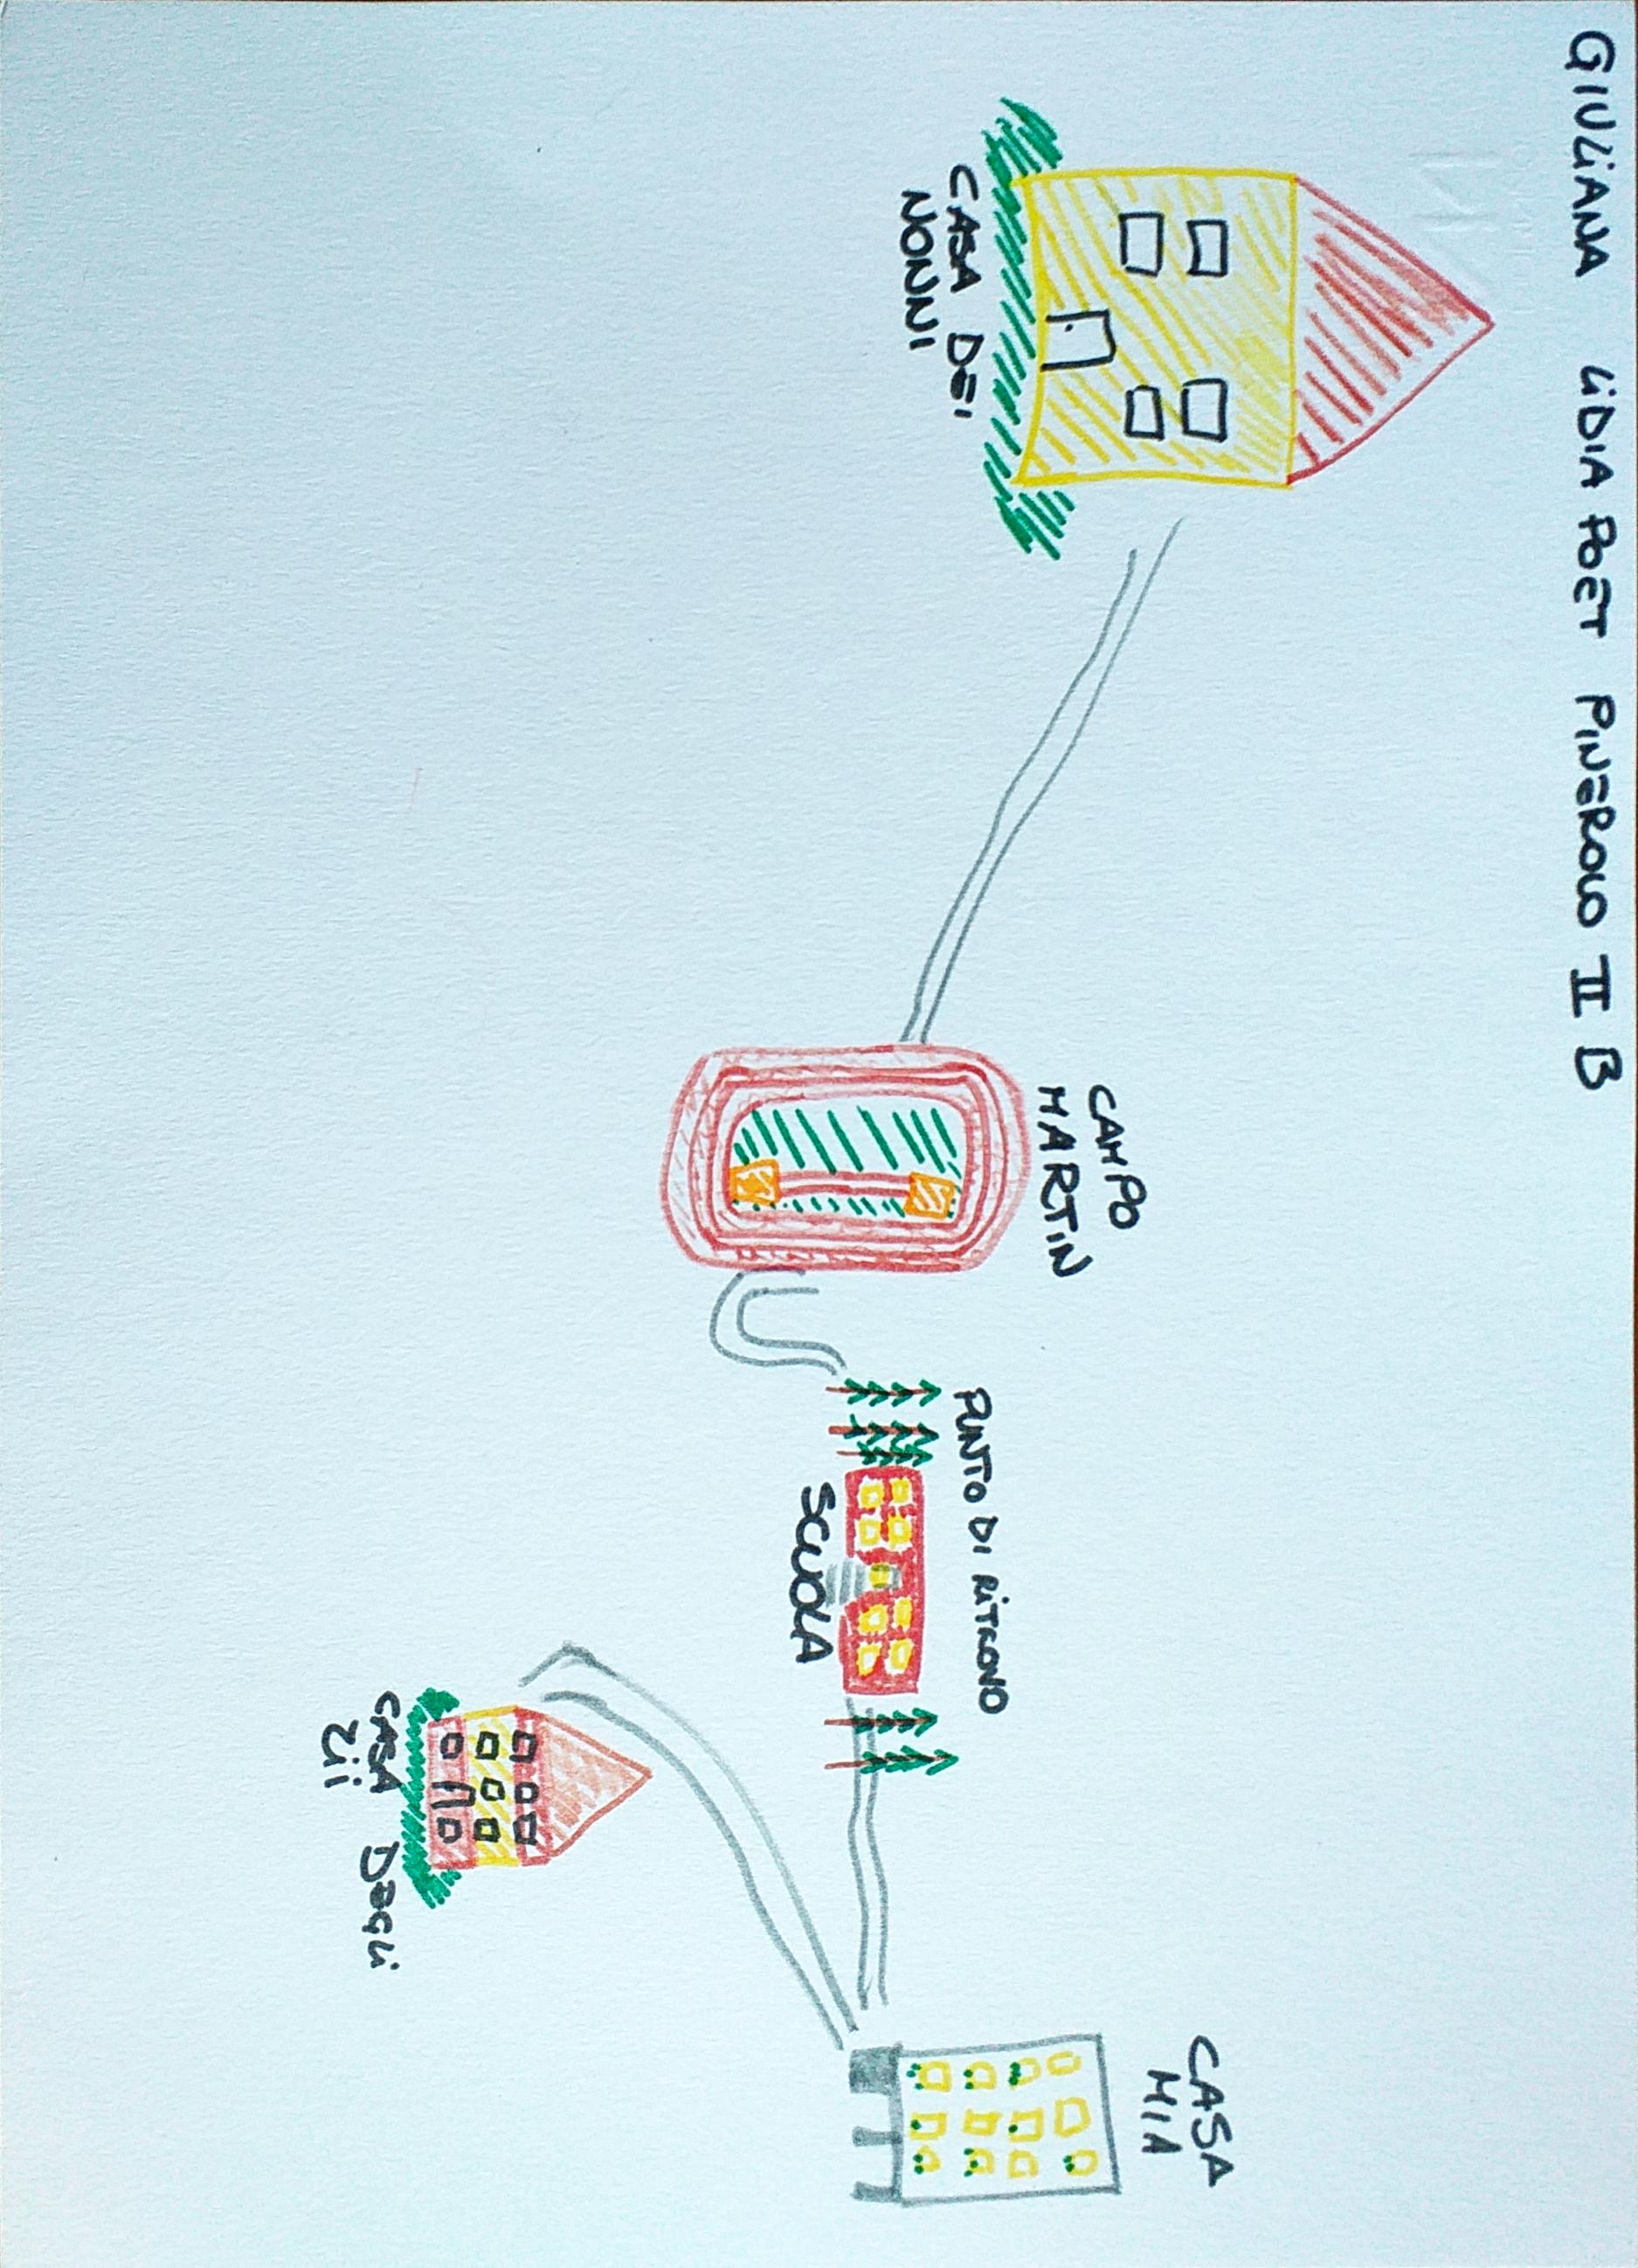 GIULIANA LIDIA POET PINEROLO II B
CASA DEI
NONNI
CAMPO
MARTIN
PUNTO DI RITROVO
SCUOLA
CASA DEGLI
ZII
CASA
MIA